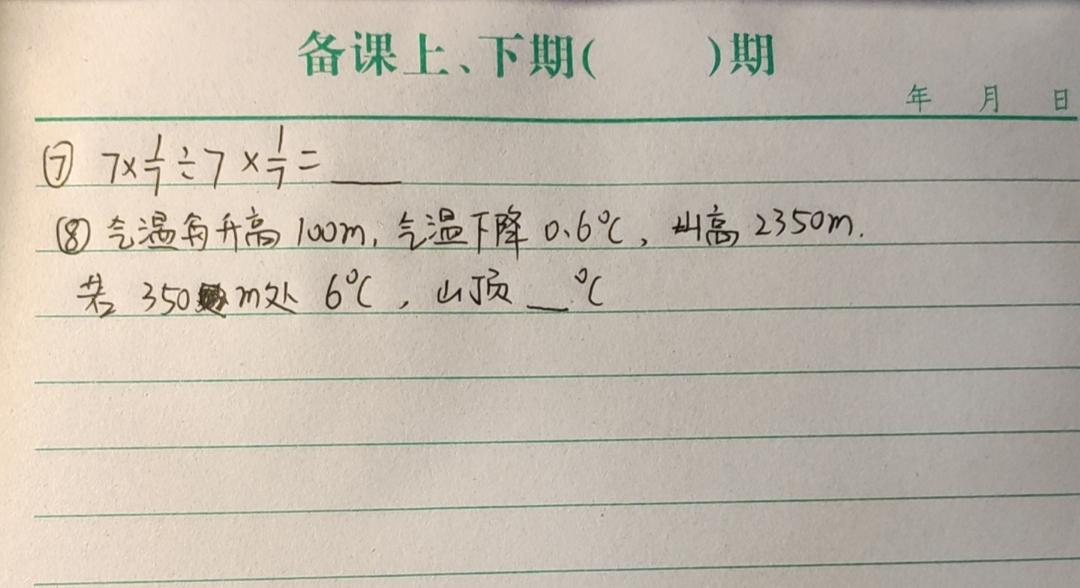 备课上、下期( )期
年 月 日
⑦ 7×1/7÷7×1/7=___
⑧ 气温每升高100m,气温下降0.6℃,山高2350m.
若350m处 6℃,山顶__℃